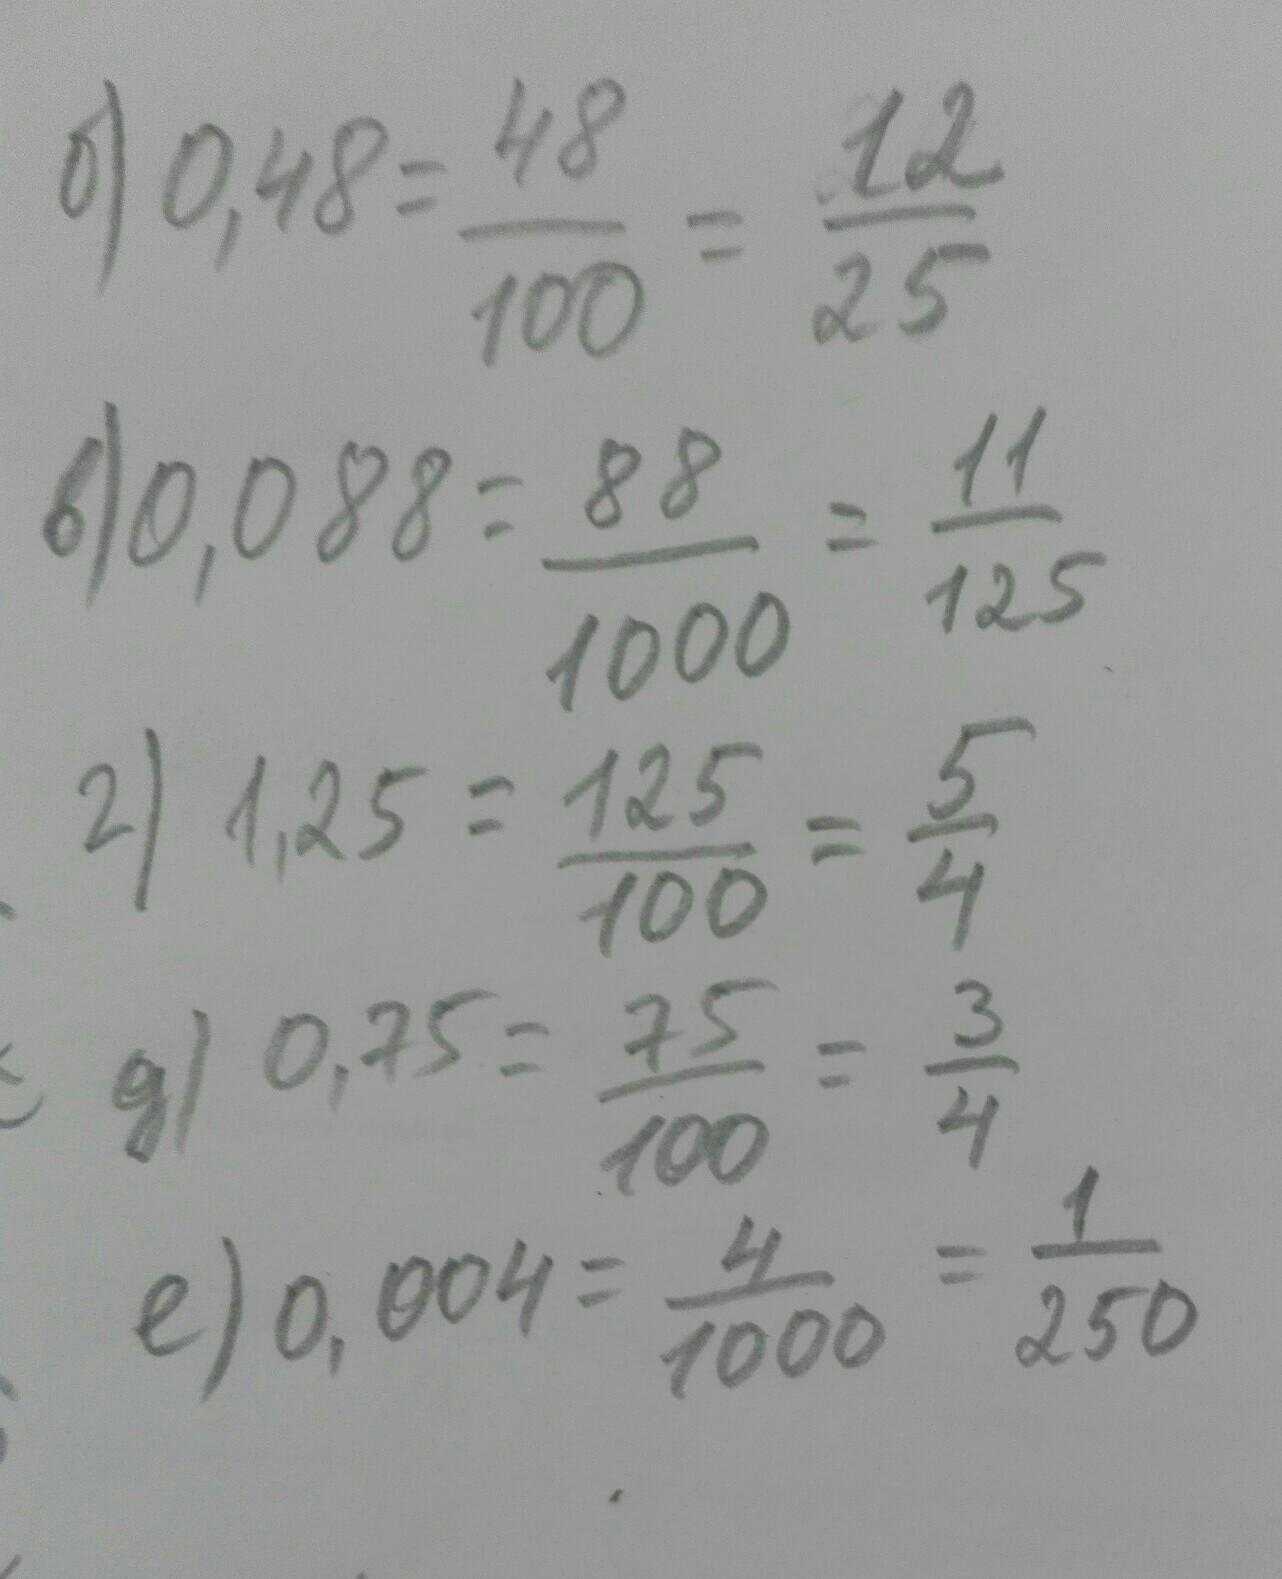 б) 0,48 = 48/100 = 12/25
в) 0,088 = 88/1000 = 11/125
г) 1,25 = 125/100 = 5/4
д) 0,75 = 75/100 = 3/4
е) 0,004 = 4/1000 = 1/250